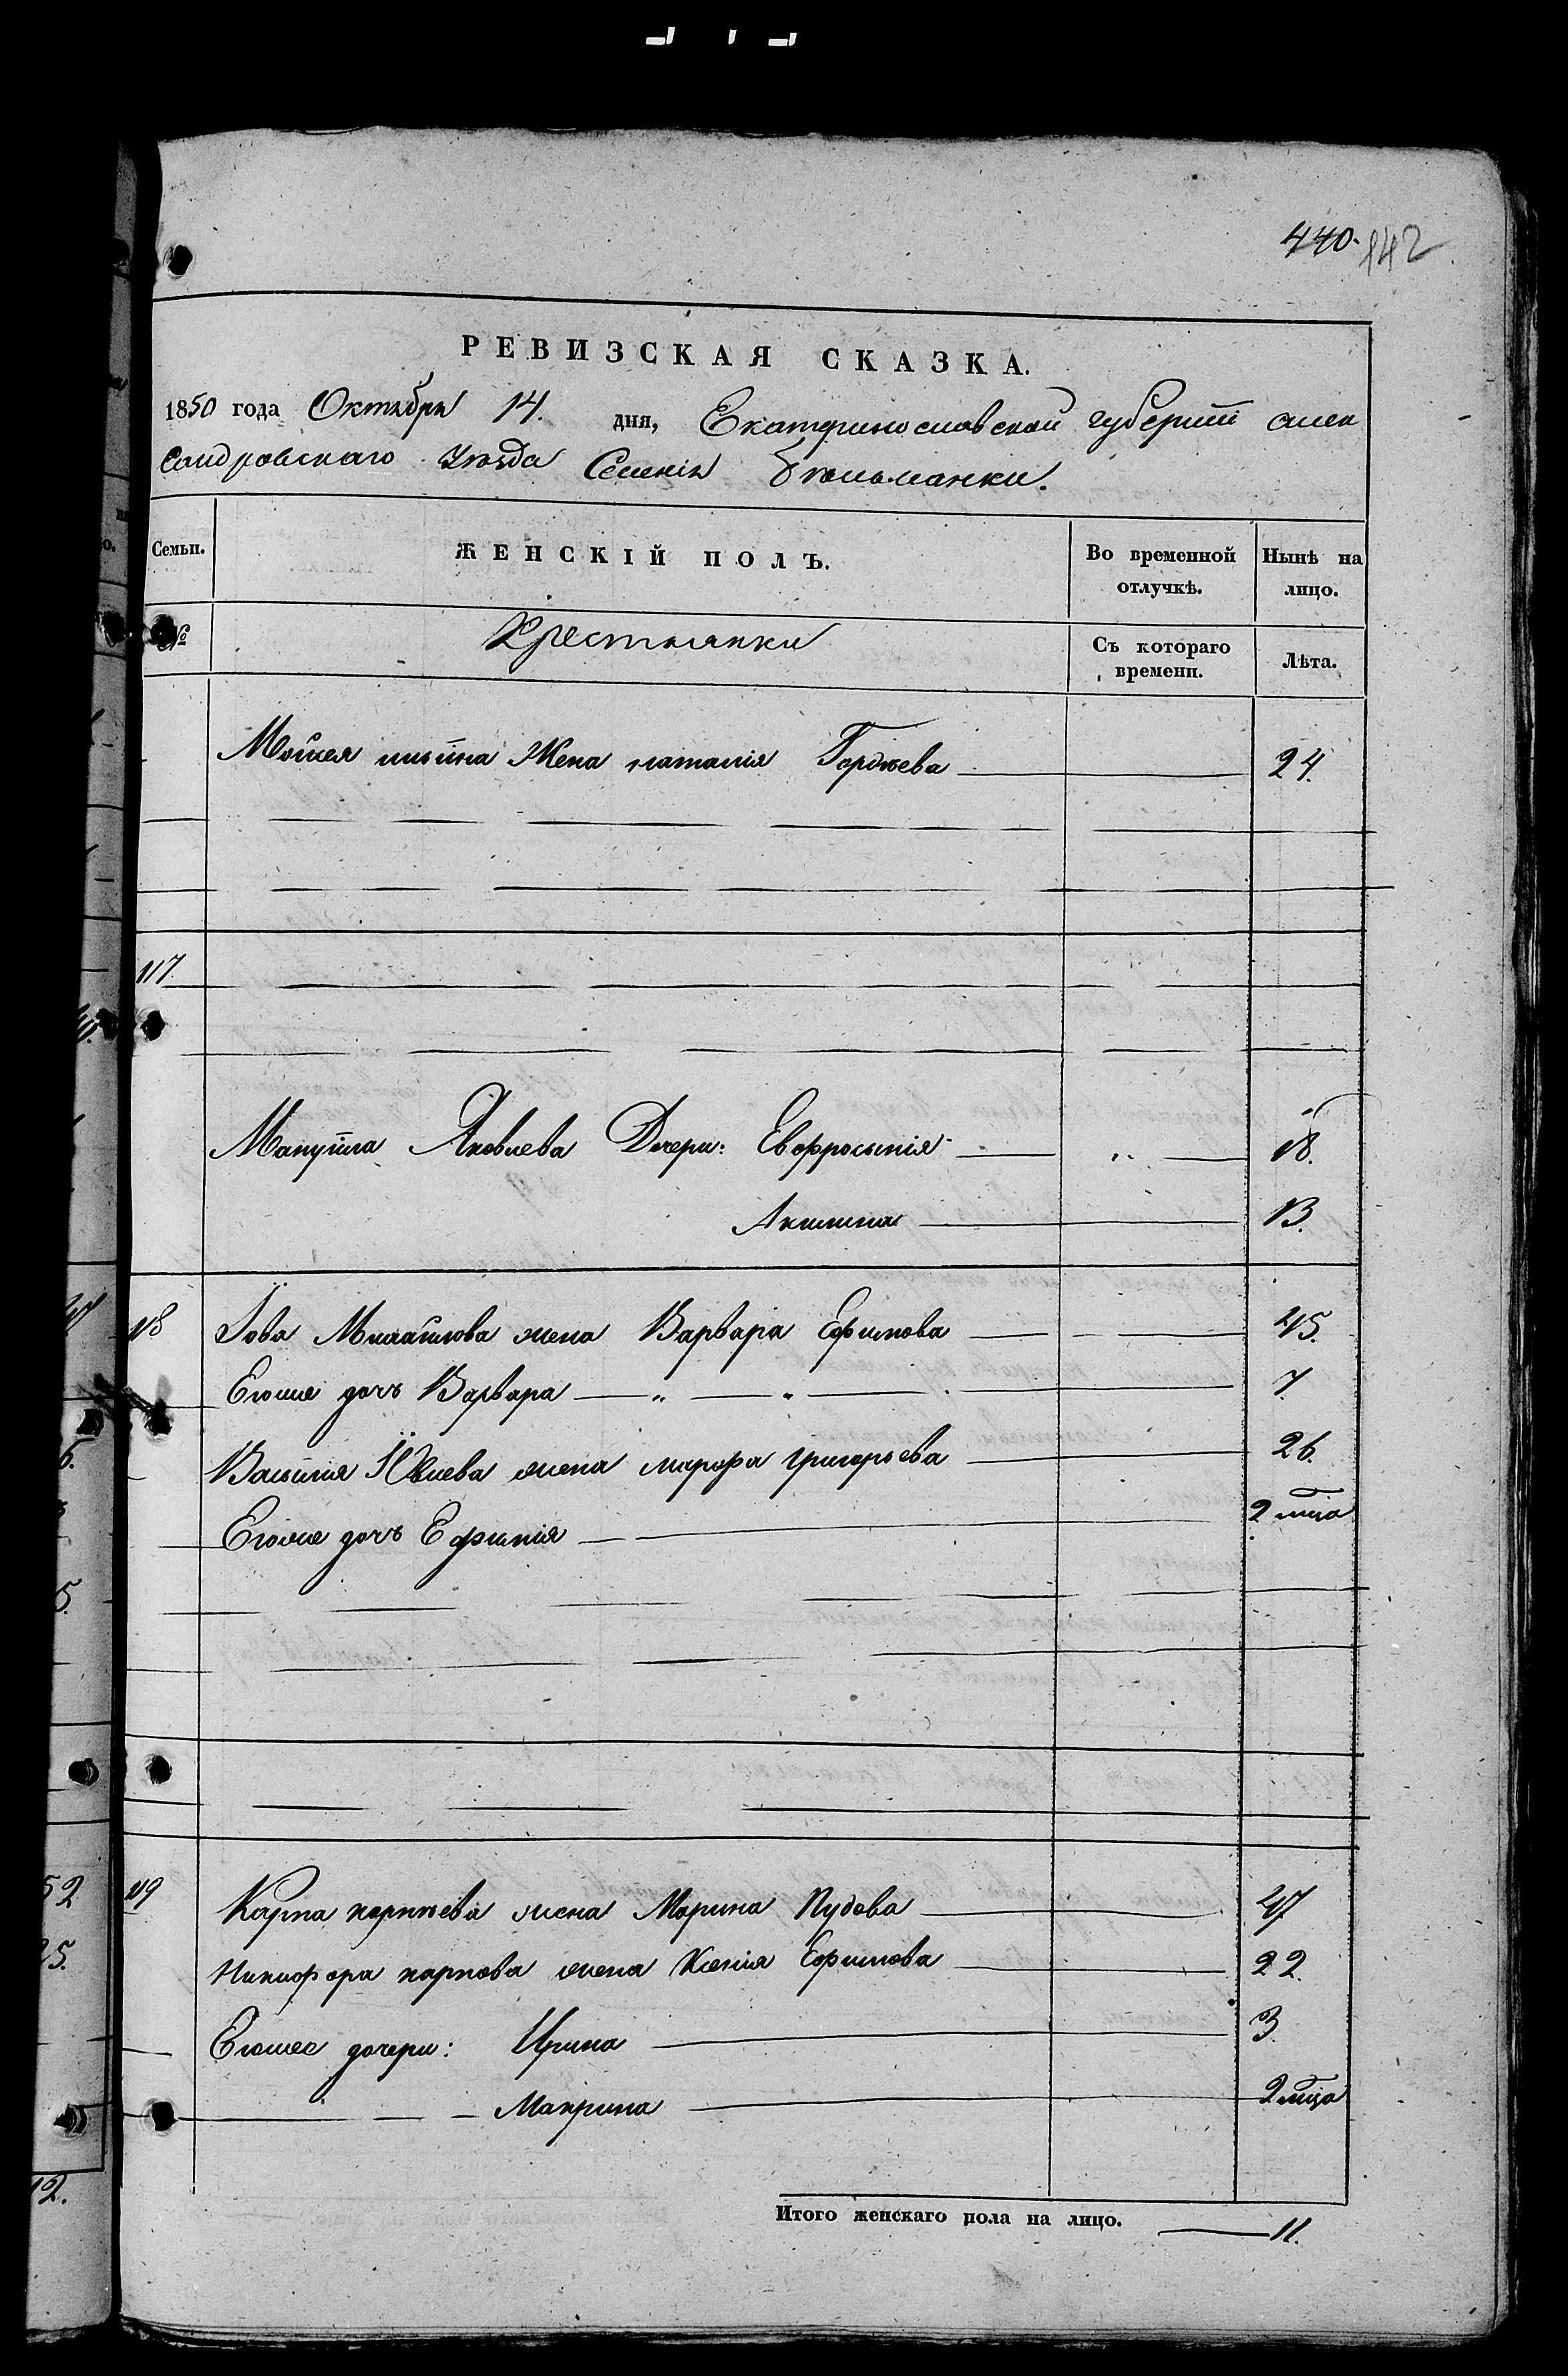 440. 142
РЕВИЗСКАЯ СКАЗКА.
1850 года Октября 14. дня, Екатеринославской губерніи Алек
сандровскаго Уезда Селенія
Семьи. ЖЕНСКІЙ ПОЛЪ. Во временной отлучкѣ. Нынѣ на лицо.
№ Крестьянки Съ котораго времени. Лѣта.
Мойсея ильина Жена наталія Гордѣева 24.
117.
Мануйла Яковлева Дочери: Евфросинія 18.
Акилина 13.
118 Іова Михайлова жена Варвара Ефимова 45.
Егоже дочь Варвара 7.
Василія Іовлева жена марфа григорьева 26.
Егоже дочь Ефимія 2 м͠ца
119 Карпа корнѣева жена Марина Пудова 47
Никифора карпова жена Ксенія Ефимова 22.
Егоже дочери: Ирина 3.
Макрина 2 м͠ца
Итого женскаго пола на лицо. 11.